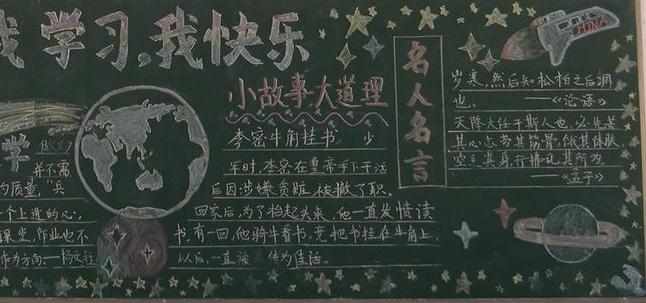 我学习,我快乐
学
并不需
的质量,“兵
一个上进的心,
课堂,作业也不
作为方向。
小故事大道理
李密牛角挂书 少
年时,李密在皇帝手下干活
后因涉嫌贪赃,被撤了职。
回家后,为了抬起头来,他一直发愤读
书,有一回,他骑牛看书,竟把书挂在牛角上,
以后,一直 传为佳话。
名人名言
岁寒,然后知松柏之后凋
也。 ——《论语》
天降大任于斯人也,必先苦
其心志,劳其筋骨,饿其体肤
空乏其身,行拂乱其所为
——《孟子》
MING